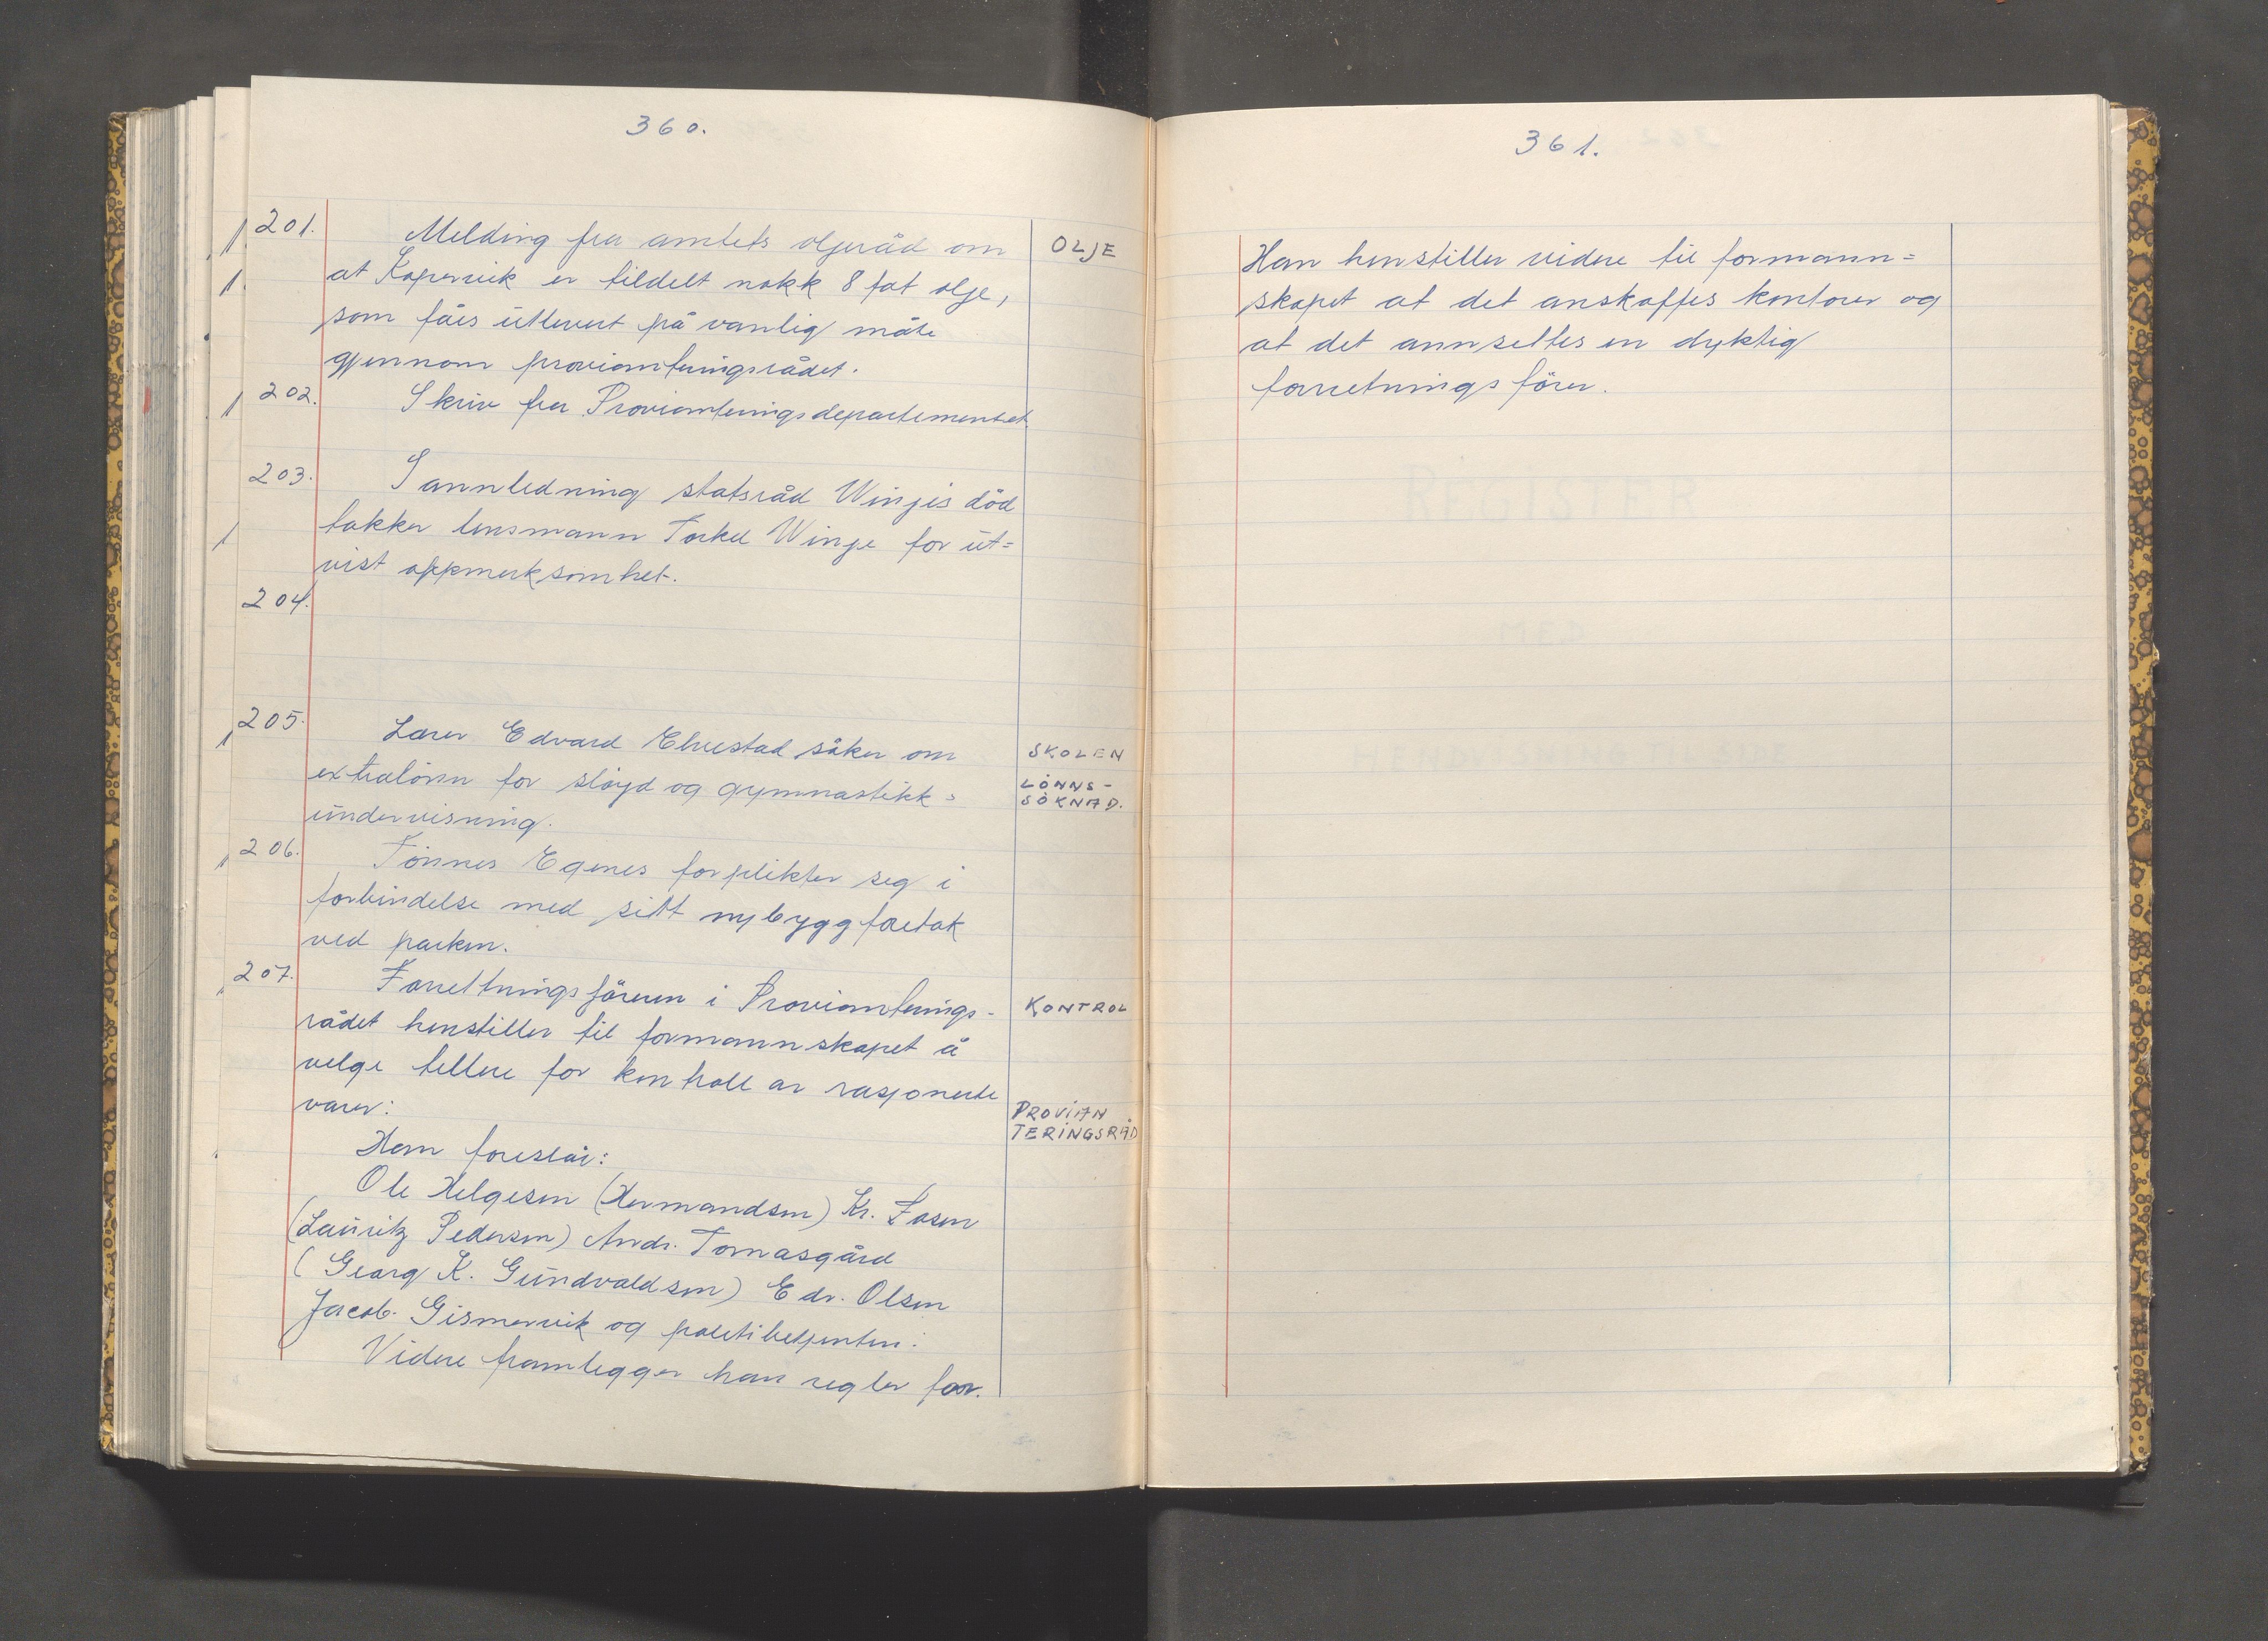 360.
201. Melding fra amtets oljeråd om
OLJE
at Kopervik er tildelt nokk 8 fat olje,
som fåes utlevert på vanlig måte
gjennom provianteringsrådet.
202. Skriv fra Provianteringsdepartementet.
203. I annledning statsråd Winjes död
takker lensmann Torkel Winje for ut=
vist oppmerksomhet.
204.
205. Lærer Edvard Elvestad söker om
SKOLEN
extralönn for slöyd og gymnastikk=
LÖNNS-
SÖKNAD.
undervisning.
206. Tönnes Egenes forplikter seg i
forbindelse med sitt nybyggforetak
ved parken.
207. Forrettningsföreren i Provianterings-
KONTROL
rådet henstiller til formannskapet å
velge tellere for kontroll av rasjonerte
varer:
PROVIAN
TERINGSRÅD
Han foreslår:
Ole Helgesen (Hermandsen) Kr. Fosen
(Lauritz Pedersen) Andr. Tomasgård
(Georg K. Gundvaldsen) Edv. Olsen
Jacob Gismervik og politibetjenten.
Videre framlegger han regler for.
361.
Han henstiller videre til formann=
skapet at det anskaffes kontorer og
at det annsettes en dyktig
forretningsförer.